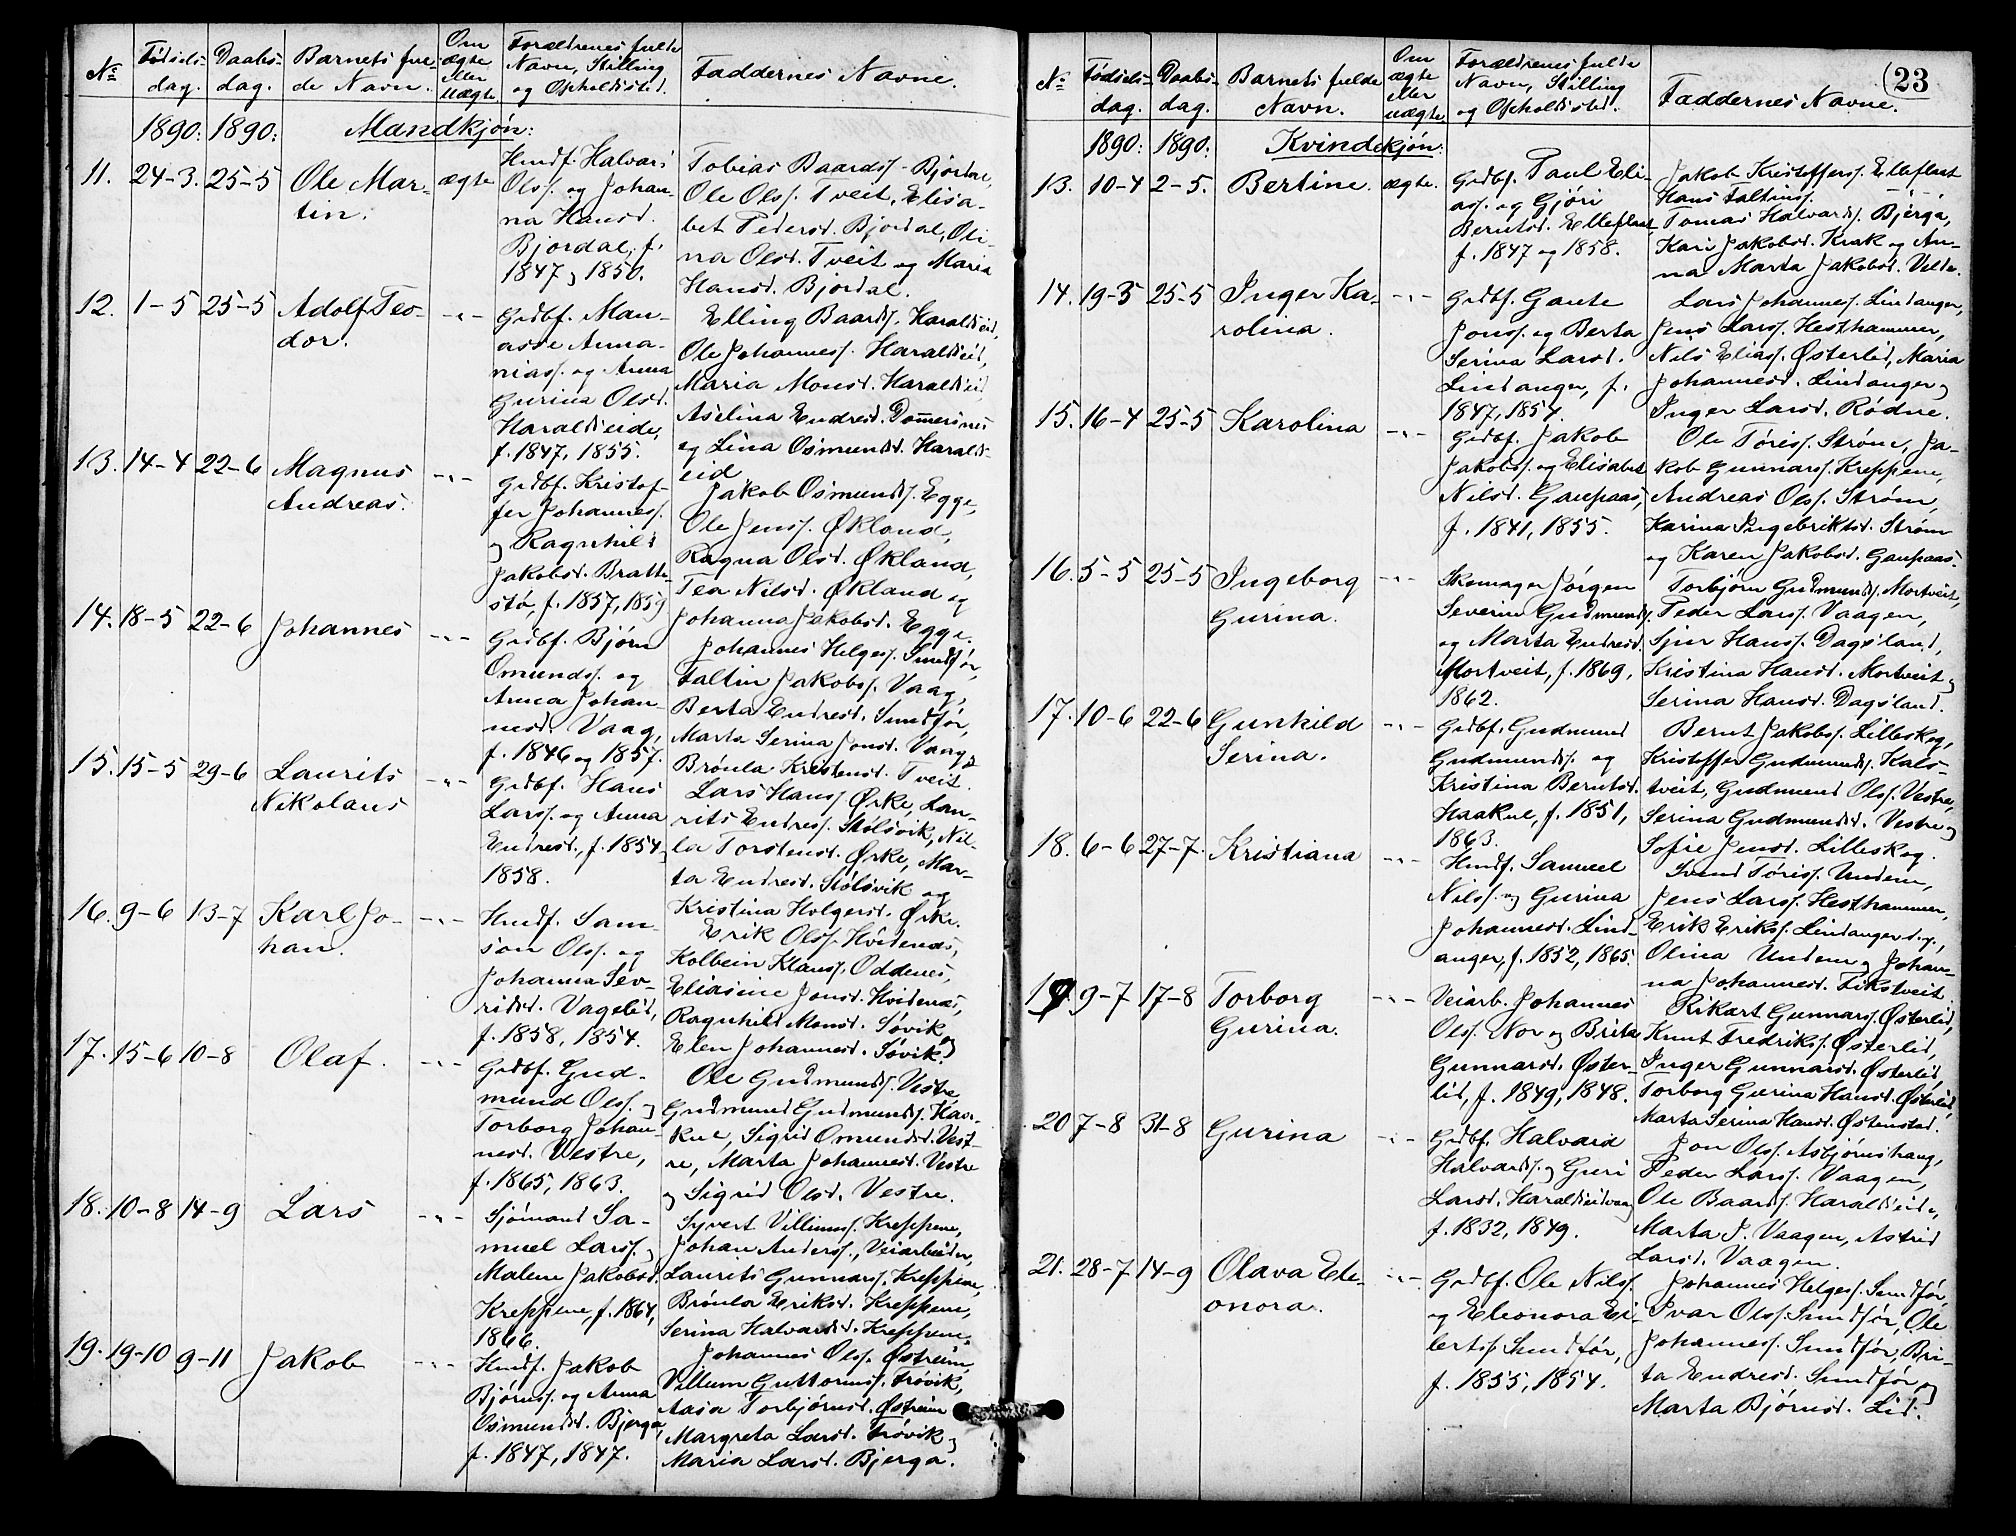 No Fødsels- dag. Daabs- dag. Barnets ful- de Navn. Om ægte eller uægte Forældrenes fulde Navn, Stilling og Opholdssted. Faddernes Navne.
1890: 1890: Mandkjøn:
11. 24-3. 25-5 Ole Mar- tin. ægte
Husmf. Halvar
Ols. og Johan-
na Hansd.
Bjordal, f.
1847 og 1850.
Tobias Baards. Bjordal,
Ole Ols. Tveit, Elisa-
bet Pedersd. Bjordal, Oli-
na Olsd. Tveit og Maria
Hansd. Bjordal.
12. 1-5 25-5 Adolf Teo- dor. -"-
Grdbf. Man-
asse Anna-
nias. og Anna
Gurina Olsd.
Haraldseide,
f. 1847, 1855.
Elling Baards. Haraldseid,
Ole Johannes. Haraldseid,
Maria Monsd. Haraldseid
Aselina Endresd. Dommersnes
og Lina Osmundsd. Haralds-
eid
13. 14-4 22-6 Magnus Andreas. -"-
Grdbf. Kristof-
fer Johannes.
og Ragnhild
Jakobsd. Bratte-
stø, f. 1857, 1859
Jakob Osmunds. Egge,
Ole Jens. Økland,
Ragna Olsd. Økland,
Tea Nilsd. Økland og
Johanna Jakobsd. Egge.
14. 18-5 22-6 Johannes -"-
Grdbf. Bjørn
Omunds. og
Anna Johan-
nesd. Vaag,
f. 1846 og 1857.
Johannes Helges. Sundfør,
Faltin Jakobs. Vaag,
Berta Endresd. Sundfør,
Marta Serina Jonsd. Vaag og
Brønla Kristensd. Tveit.
15. 15-5 29-6 Laurits Nikolaus -"-
Grdbf. Hans
Lars. og Anna
Endresd., f. 1854,
1858.
Lars Hans. Ørke, Lau-
rits Endres. Stølsvik, Nil-
la Torstensd. Ørke, Mar-
ta Endresd. Stølsvik og
Kristina Holgersd. Ørke.
16. 9-6 13-7 Karl Jo- han. -"-
Husmf. Sam-
son Ols. og
Johanna Sev-
rids. Vagslid,
f. 1858, 1854.
Erik Ols. Hvidenæs,
Kolbein Klaus. Oddenes,
Eliasine Jonsd. Hvidenæs,
Ragnhild Monsd. Søvik
Elen Johannesd. Søvik.
17. 15-6 10-8 Olaf. -"-
Grdbf. Gud-
mund Ols. og
Torborg Johan-
nesd. Vestre,
f. 1865, 1863.
Ole Gudmunds. Vestre
Gudmund Gudmunds. Haa-
kul, Sigrid Omundsd. Vest-
re, Marta Johannesd. Vestre
og Sigrid Olsd. Vestre.
18. 10-8 14-9 Lars -"-
Sjømand Sa-
muel Lars. og
Malene Jakobsd.
Kreppene, f. 1864,
1866.
Syvert Villiums. Kreppene,
Johan Anders., Veiarbeider,
Laurits Gunnars. Kreppene,
Brønla Eriksd. Kreppene,
Serina Halvardsd. Kreppene.
19. 19-10 9-11 Jakob -"-
Husmf. Jakob
Bjørns. og Anna
Osmundsd. Bjerga,
f. 1847, 1847.
Johannes Ols. Østreim,
Villum Guttorms. Frøvik,
Aasa Torbjørnsd. Østreim
Margreta Larsd. Frøvik og
Maria Larsd. Bjerga.
(23
No Fødsels- dag. Daabs- dag. Barnets fulde Navn. Om ægte eller uægte Forældrenes fulde Navn, Stilling og Opholdssted. Faddernes Navne.
1890: 1890: Kvindekjøn:
13. 10-4 2-5. Bertine. ægte.
Grdbf. Paul Eli-
as. og Gjøri
Berntsd. Elleflaat
f. 1847 og 1858.
Jakob Kristoffers. Elleflaat
Hans Faltins. -"-
Tomas Halvards. Bjerga,
Kari Jakobsd. Krak og An-
na Marta Jakobsd. Velde.
14. 19-3 25-5 Inger Ka- rolina. -"-
Grdbf. Gaute
Jons. og Berta
Serina Larsd.
Lindanger, f.
1847, 1854.
Lars Johannes. Lindanger,
Jens Lars. Hesthammer,
Nils Elias. Østerlid, Maria
Johannesd. Lindanger og
Inger Larsd. Rødne.
15. 16-4 25-5 Karolina -"-
Grdbf. Jakob
Jakobs. og Elisabet
Nilsd. Gaupaas,
f. 1841, 1855.
Ole Tøris. Strøm, Ja-
kob Gunnars. Kreppene,
Andreas Ols. Strøm,
Karina Ingebriktsd. Strøm
og Karen Jakobsd. Gaupaas.
16. 5-5 25-5 Ingeborg Gurina. -"-
Skomager Jørgen
Severin Gudmunds.
og Marta Endresd.
Mortveit, f. 1869,
1862.
Torbjørn Gudmunds. Mortveit,
Peder Lars. Vaagen,
Sjur Hans. Dagsland,
Kristina Hansd. Mortveit og
Serina Hansd. Dagsland.
17. 10-6 22-6 Gunhild Serina. -"-
Grdbf. Gudmund
Gudmunds. og
Kristina Berntsd.
Haakul, f. 1851,
1863.
Bernt Jakobs. Lilleskog,
Kristoffer Gudmunds. Kals-
tveit, Gudmund Ols. Vestre,
Serina Gudmundsd. Vestre og
Sofie Jensd. Lilleskog.
18. 6-6 27-7. Kristiana -"-
Husmf. Samuel
Nils. og Gurina
Johannesd. Lind-
anger, f. 1852, 1865.
Svend Tøris. Undem,
Jens Lars. Hesthammer,
Erik Eriks. Lindanger d.y.,
Olina Undem og Johan-
na Johannesd. Fikstveit
19. 9-7 17-8 Torborg Gurina. -"-
Veiarb. Johannes
Ols. Nor og Brita
Gunnarsd. Øster-
lid, f. 1849, 1848.
Rikart Gunnars. Østerlid,
Knut Fredriks. Østerlid,
Inger Gunnarsd. Østerlid,
Torborg Gurina Hansd. Østerlid,
Marta Serina Hansd. Østenstad.
20 7-8 31-8 Gurina -"-
Grdbf. Halvard
Halvards. og Guri
Larsd. Haraldseidvaag
f. 1832, 1849.
Jon Ols. Asbjørnshaug,
Peder Lars. Vaagen,
Ole Baards. Haraldseide,
Marta P. Vaagen, Astrid
Larsd. Vaagen.
21. 28-7 14-9 Olava Ele- onora. -"-
Grdbf. Ole Nils.
og Eleonora Ei-
lerts. Sundfør,
f. 1855, 1854.
Johannes Helges. Sundfør,
Ivar Ols. Sundfør, Ole
Johannes. Sundfør, Bri-
ta Endresd. Sundfør og
Marta Bjørnsd. Lid.